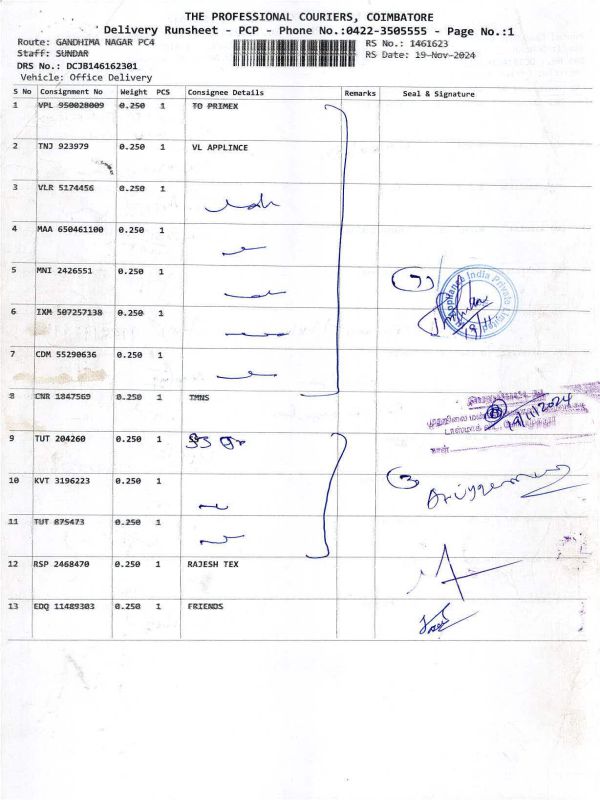 THE PROFESSIONAL COURIERS, COIMBATORE
Delivery Runsheet - PCP - Phone No.:0422-3505555 - Page No.:1
Route: GANDHIMA NAGAR PC4
RS No.: 1461623
Staff: SUNDAR
RS Date: 19-Nov-2024
DRS No.: DCJB146162301
Vehicle: Office Delivery
S No Consignment No Weight PCS Consignee Details Remarks Seal & Signature
1 VPL 950028009 0.250 1 TO PRIMEX
2 TNJ 923979 0.250 1 VL APPLINCE
3 VLR 5174456 0.250 1
4 MAA 650461100 0.250 1
5 MNI 2426551 0.250 1
Appliance India Private Limited
19/11
6 IXM 507257138 0.250 1
7 CDM 55290636 0.250 1
8 CNR 1847569 0.250 1 TMNS
19/11/2024
9 TUT 204260 0.250 1
10 KVT 3196223 0.250 1
11 TUT 875473 0.250 1
12 RSP 2468470 0.250 1 RAJESH TEX
13 EDQ 11489303 0.250 1 FRIENDS